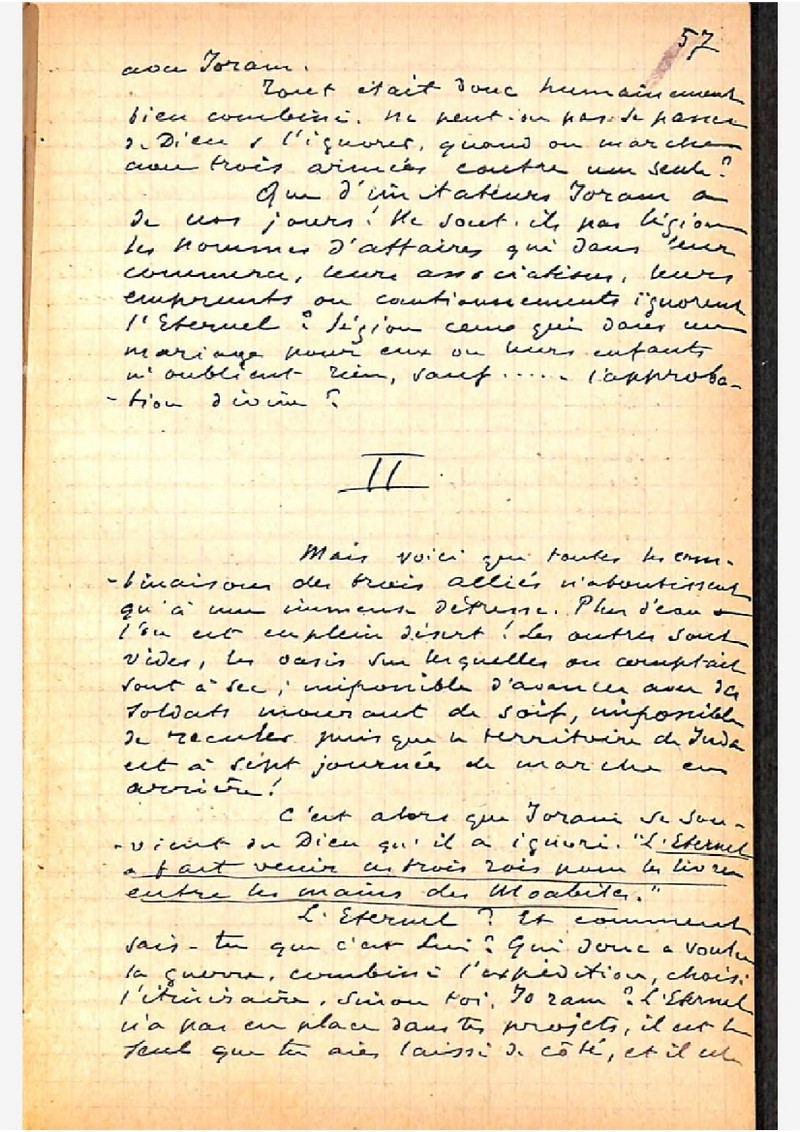 57
avec Joram.
Tout était donc humainement
bien combiné. Ne peut-on pas se passer
de Dieu & l'ignorer, quand on marche
avec trois armées contre une seule ?
Que d'imitateurs Joram a
de nos jours ! Ne sont-ils pas légion
les hommes d'affaires qui dans leur
commerce, leurs associations, leurs
emprunts ou cautionnements ignorent
l'Eternel ? Légion ceux qui dans un
mariage pour eux ou leurs enfants
n'oublient rien, sauf ..... l'approba-
-tion divine ?
II
Mais voici que toutes les com-
-binaisons des trois alliés n'aboutissent
qu'à une immense détresse. Plus d'eau &
l'on est en plein désert ! Les outres sont
vides, les oasis sur lesquelles on comptait
sont à sec ; impossible d'avancer avec des
soldats mourant de soif, impossible
de reculer puisque le territoire de Juda
est à sept journées de marche en
arrière !
C'est alors que Joram se sou-
-vient du Dieu qu'il a ignoré. "L'Eternel
a fait venir ces trois rois pour les livrer
entre les mains des Moabites."
L'Eternel ? Et comment
sais-tu que c'est Lui ? Qui donc a voulu
la guerre, combiné l'expédition, choisi
l'itinéraire, sinon toi, Joram ? L'Eternel
n'a pas eu place dans tes projets, il est le
seul que tu aies laissé de côté, et il est